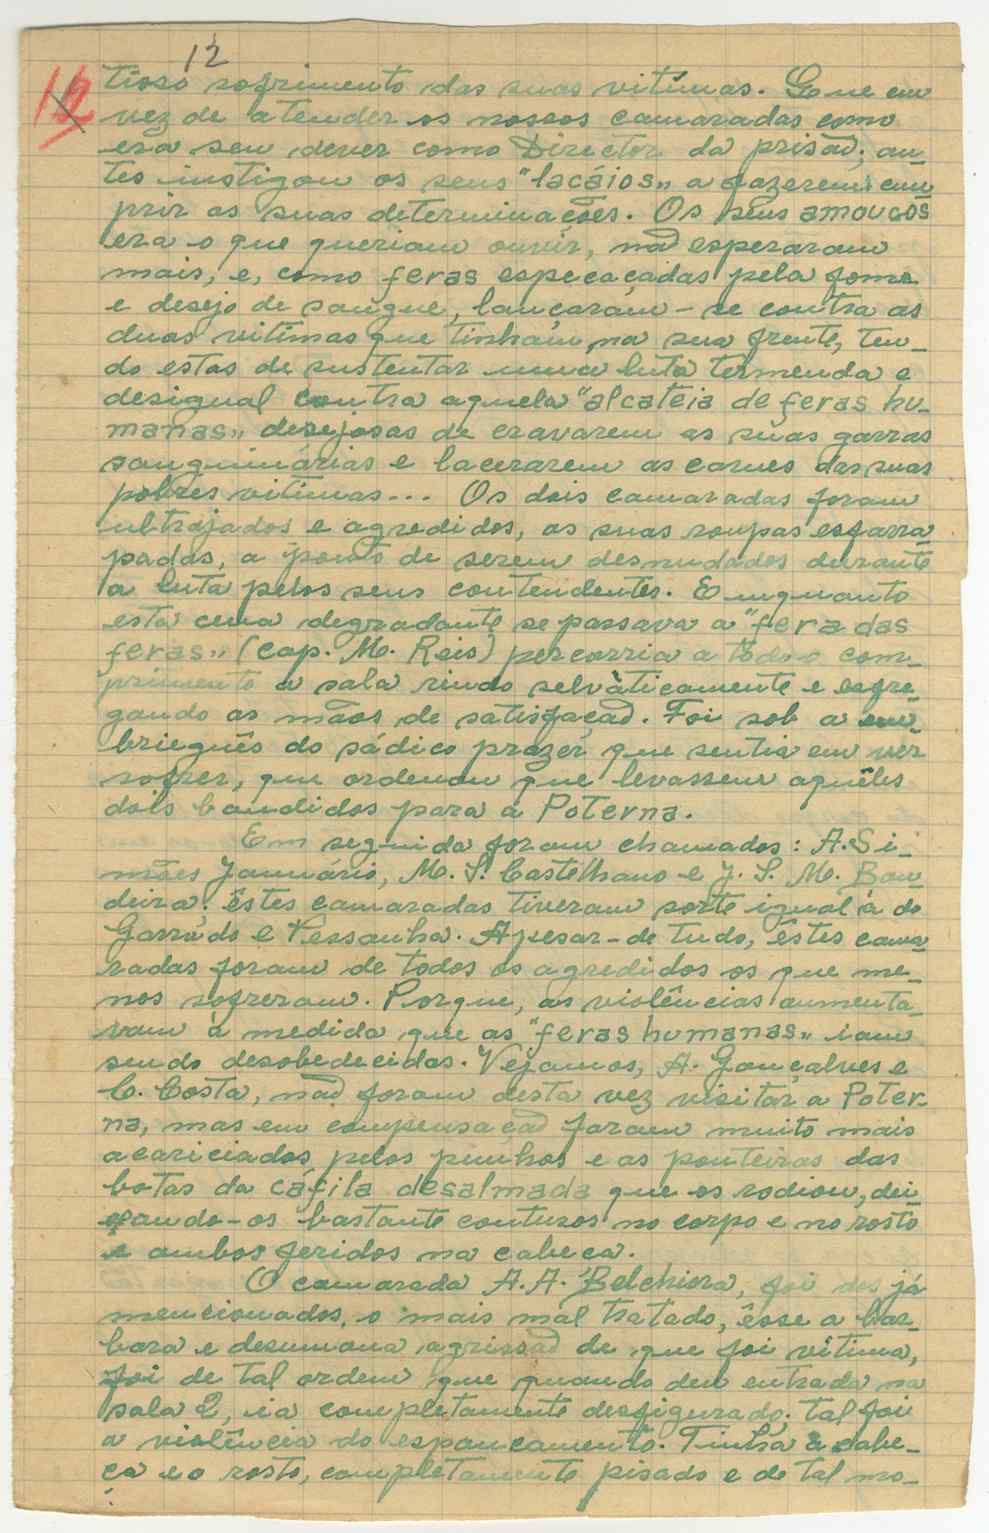 12
12
tioso sofrimento das suas vitímas. E que em
vez de atender os nossos camaradas como
era seu dever como Director da prisão; an-
tes instigou os seus "lacáios„ a fazerem cum
prir as suas determinações. Os seus amoucos
era o que queriam ouvir, não esperaram
mais, e, como feras espicaçadas pela fome
e desejo de sangue, lançaram-se contra as
duas vitimas que tinham na sua frente, ten-
do estas de sustentar uma luta termenda e
desigual contra aquela "alcateia de feras hu-
manas„ desejosas de cravarem as suas garras
sanguinárias e lacerarem as carnes das suas
pobres vitimas... Os dois camaradas foram
ultrajados e agredidos, as suas roupas esfarra-
padas, a ponto de serem desnudados durante
a luta pelos seus contendentes. Emquanto
esta cena degradante se passava a "fera das
feras„ (cap. M. Reis) percorria a todo o com-
primento a sala rindo selvàticamente e esfre-
gando as mãos de satisfação. Foi sob a em-
brieguês do sádico prazer que sentia em ver
sofrer, que ordenou que levassem aquêles
dois bandidos para a Poterna.
Em seguida foram chamados: A. Si-
mões Januário, M. S. Castelhano e J. S. M. Ban-
deira, êstes camaradas tiveram sorte igual à do
Garrido e Pessanha. Apesar-de tudo, êstes cama-
radas foram de todos os agredidos os que me-
nos sofreram. Porque, as violências aumenta-
vam à medida que as "feras humanas„ iam
sendo desobedecidas. Vejamos, A. Gonçalves e
C. Costa, não foram desta vez visitar a Poter-
na, mas em compensação foram muito mais
acariciados pelos punhos e as ponteiras das
botas da cáfila desalmada que os rodiou, dei-
xando-os bastante contusos no corpo e no rosto
e ambos feridos na cabeca.
O camarada A. A. Belchiora, foi dos já
mencionados, o mais mal tratado, êsse a bar-
bara e desumana agrissão de que foi vitima,
foi de tal ordem que quando deu entrada na
sala 2, ia completamente desfigurado; tal foi
a violência do espancamento. Tinha a cabe-
ça e o rosto, completamente pisado e de tal mo-